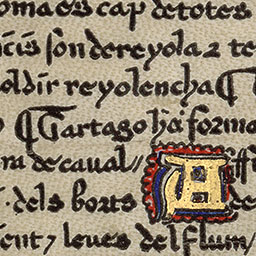 oma es cap de totes
icis fon de reyola 2 te
oldir reyolencha ¶
¶ Cartago ha forma
ra de caual// A ff
· dels borts
ient 7 leues del flum/